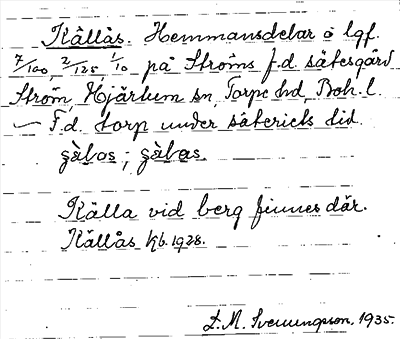 Källås. Hemmansdelar å lgf.
7/100, 2/125, 1/10 på Ströms f.d. sätesgård
Ström, Hjärtum sn, Torpe hd, Boh. l.
— F.d. torp under säteriets tid.
gàlos; gàlas.
Källa vid berg finnes där.
Källås kb. 1928.
D. A. Svenungsson, 1935.